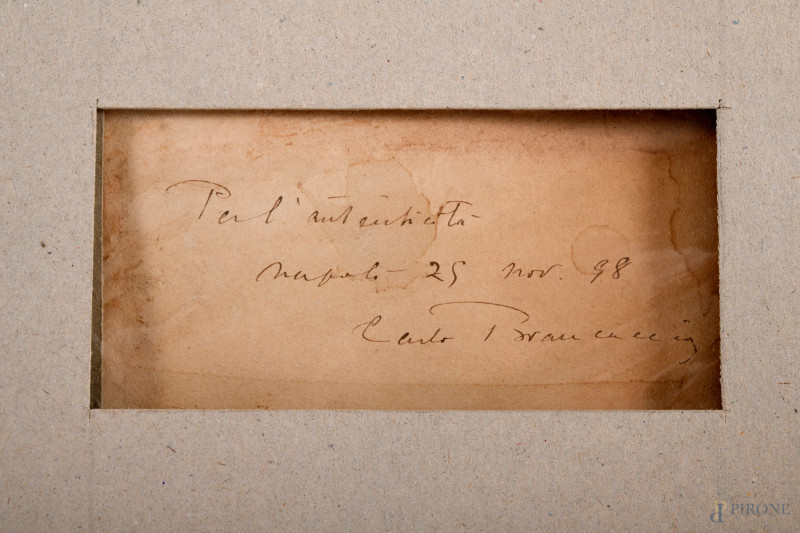 Per l'autenticità
Napoli 25 nov. 98
Carlo Brancaccio
PIRONE